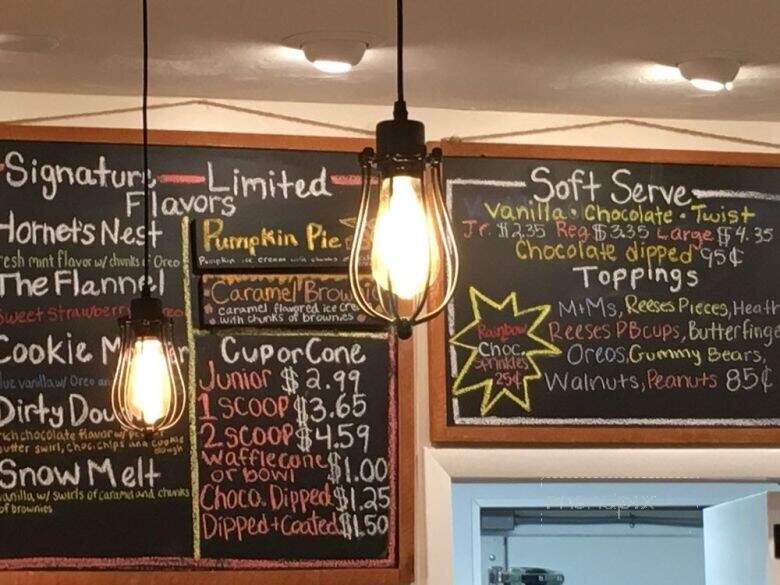 Signature
Flavors
Hornet's Nest
mint flavor w/ chunks of Oreo
The Flannel
Sweet Strawberry
Cookie
vanilla w/ Oreo
Dirty
rich chocolate flavor w/
butter swirl, choc. chips and cookie
dough
Snow Melt
vanilla w/ swirls of caramel and chunks
of brownies
Limited
Pumpkin Pie
Pumpkin ice cream with chunks
Caramel
caramel flavored ice
with chunks of brownies
Cup or Cone
Junior $2.99
1 scoop $3.65
2 scoop $4.59
waffle cone
or bowl $1.00
Choco. Dipped $1.25
Dipped + Coated $1.50
Soft Serve
Vanilla • Chocolate • Twist
Jr. $2.35 Reg $3.35 Large $4.35
Chocolate dipped 95¢
Toppings
M+Ms, Reeses Pieces,
Reeses PB cups,
Oreos, Gummy Bears,
Walnuts, Peanuts 85¢
Rainbow
Choc.
Sprinkles
25¢